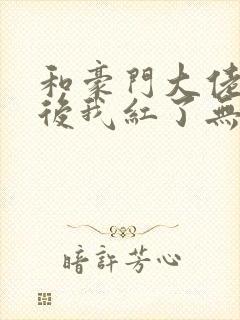 和豪門大佬
後我紅了無
暗許芳心